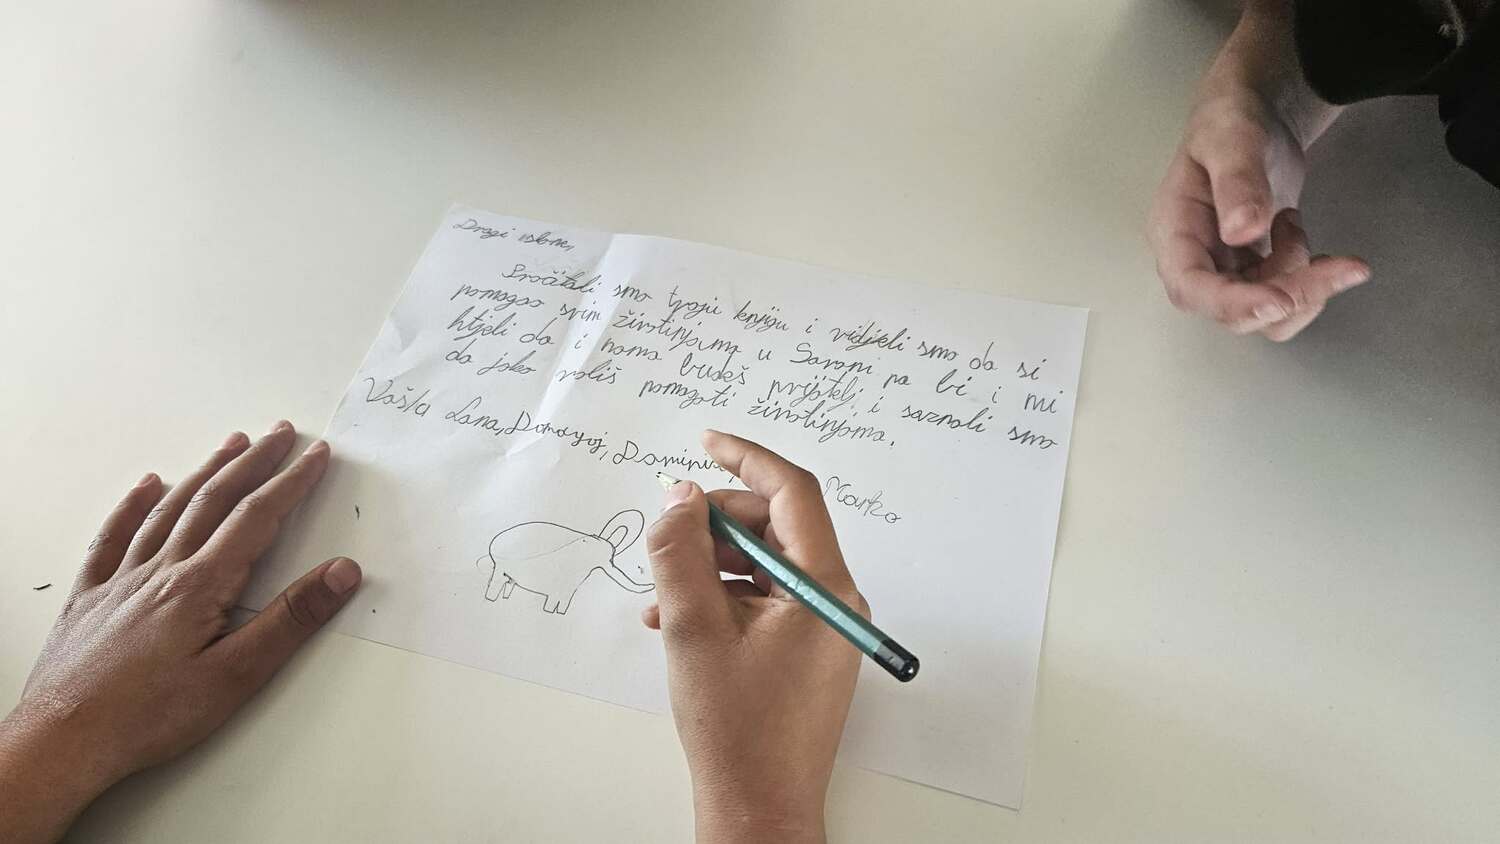 Dragi slone,
Pročitali smo tvoju knjigu i vidjeli smo da si
pomagao svim životinjama u Savani pa bi i mi
htjeli da i nama budeš prijatelj i saznali smo
da jako voliš pomagati životinjama.
Vaš/a Lana, Domagoj, Marko